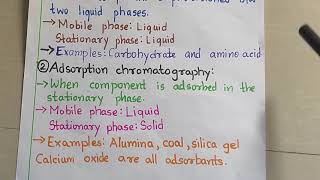 two liquid phases.
→Mobile phase: Liquid
Stationary phase: Liquid
→Examples: Carbohydrate and amino acid
②Adsorption chromatography:
→When component is adsorbed in the
stationary phase.
→Mobile phase: Liquid
Stationary phase: Solid
→Examples: Alumina, coal, silica gel
Calcium oxide are all adsorbants.